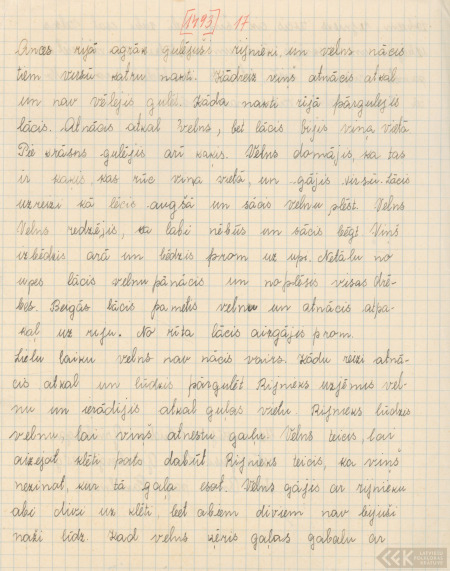 [1493] 17
Ances rijā agrāk gulējuši rijnieki, un velns nācis
tiem virsū katru nakti. Kādreiz viņš atnācis atkal
un nav vēlējis gulēt. Kāda nakti rijā pārgulējis
lācis. Atnācis atkal Velns, bet lācis bijis viņa vietā.
Pie krāsns gulējis arī kaķis. Velns domājis, ka tas
ir kaķis, kas rūc viņa vietā, un gājis virsū. Lācis
uzreizi kā lēcis augšā un sācis velnu plēst. Velns
Velns redzējis, ka labi nebūs un sācis bēgt. Viņš
izbēdzis ārā un bēdzis prom uz upi. Netālu no
upes lācis velnu panācis un noplēsis visas drē-
bes. Beigās lācis pametis velnu un atnācis atpa-
kaļ uz riju. No rīta lācis aizgājis prom.
Lielu laiku velns nav nācis vairs. Kādu reizi atnā-
cis atkal un lūdzis pārgulēt. Rijnieks uzņēmis vel-
nu un ierādījis atkal guļas vietu. Rijnieks lūdzis
velnu, lai viņš atnestu gaļu. Velns teicis, lai
aizejot klēti pato dabūt. Rijnieks teicis, ka viņš
nezinot, kur tā gaļa esot. Velns gājis ar rijnieku
abi divi uz klēti, bet abiem diviem nav bijuši
naži līdz. Kad velns ķēris gaļas gabalu ar
LATVIEŠU FOLKLORAS KRĀTUVE